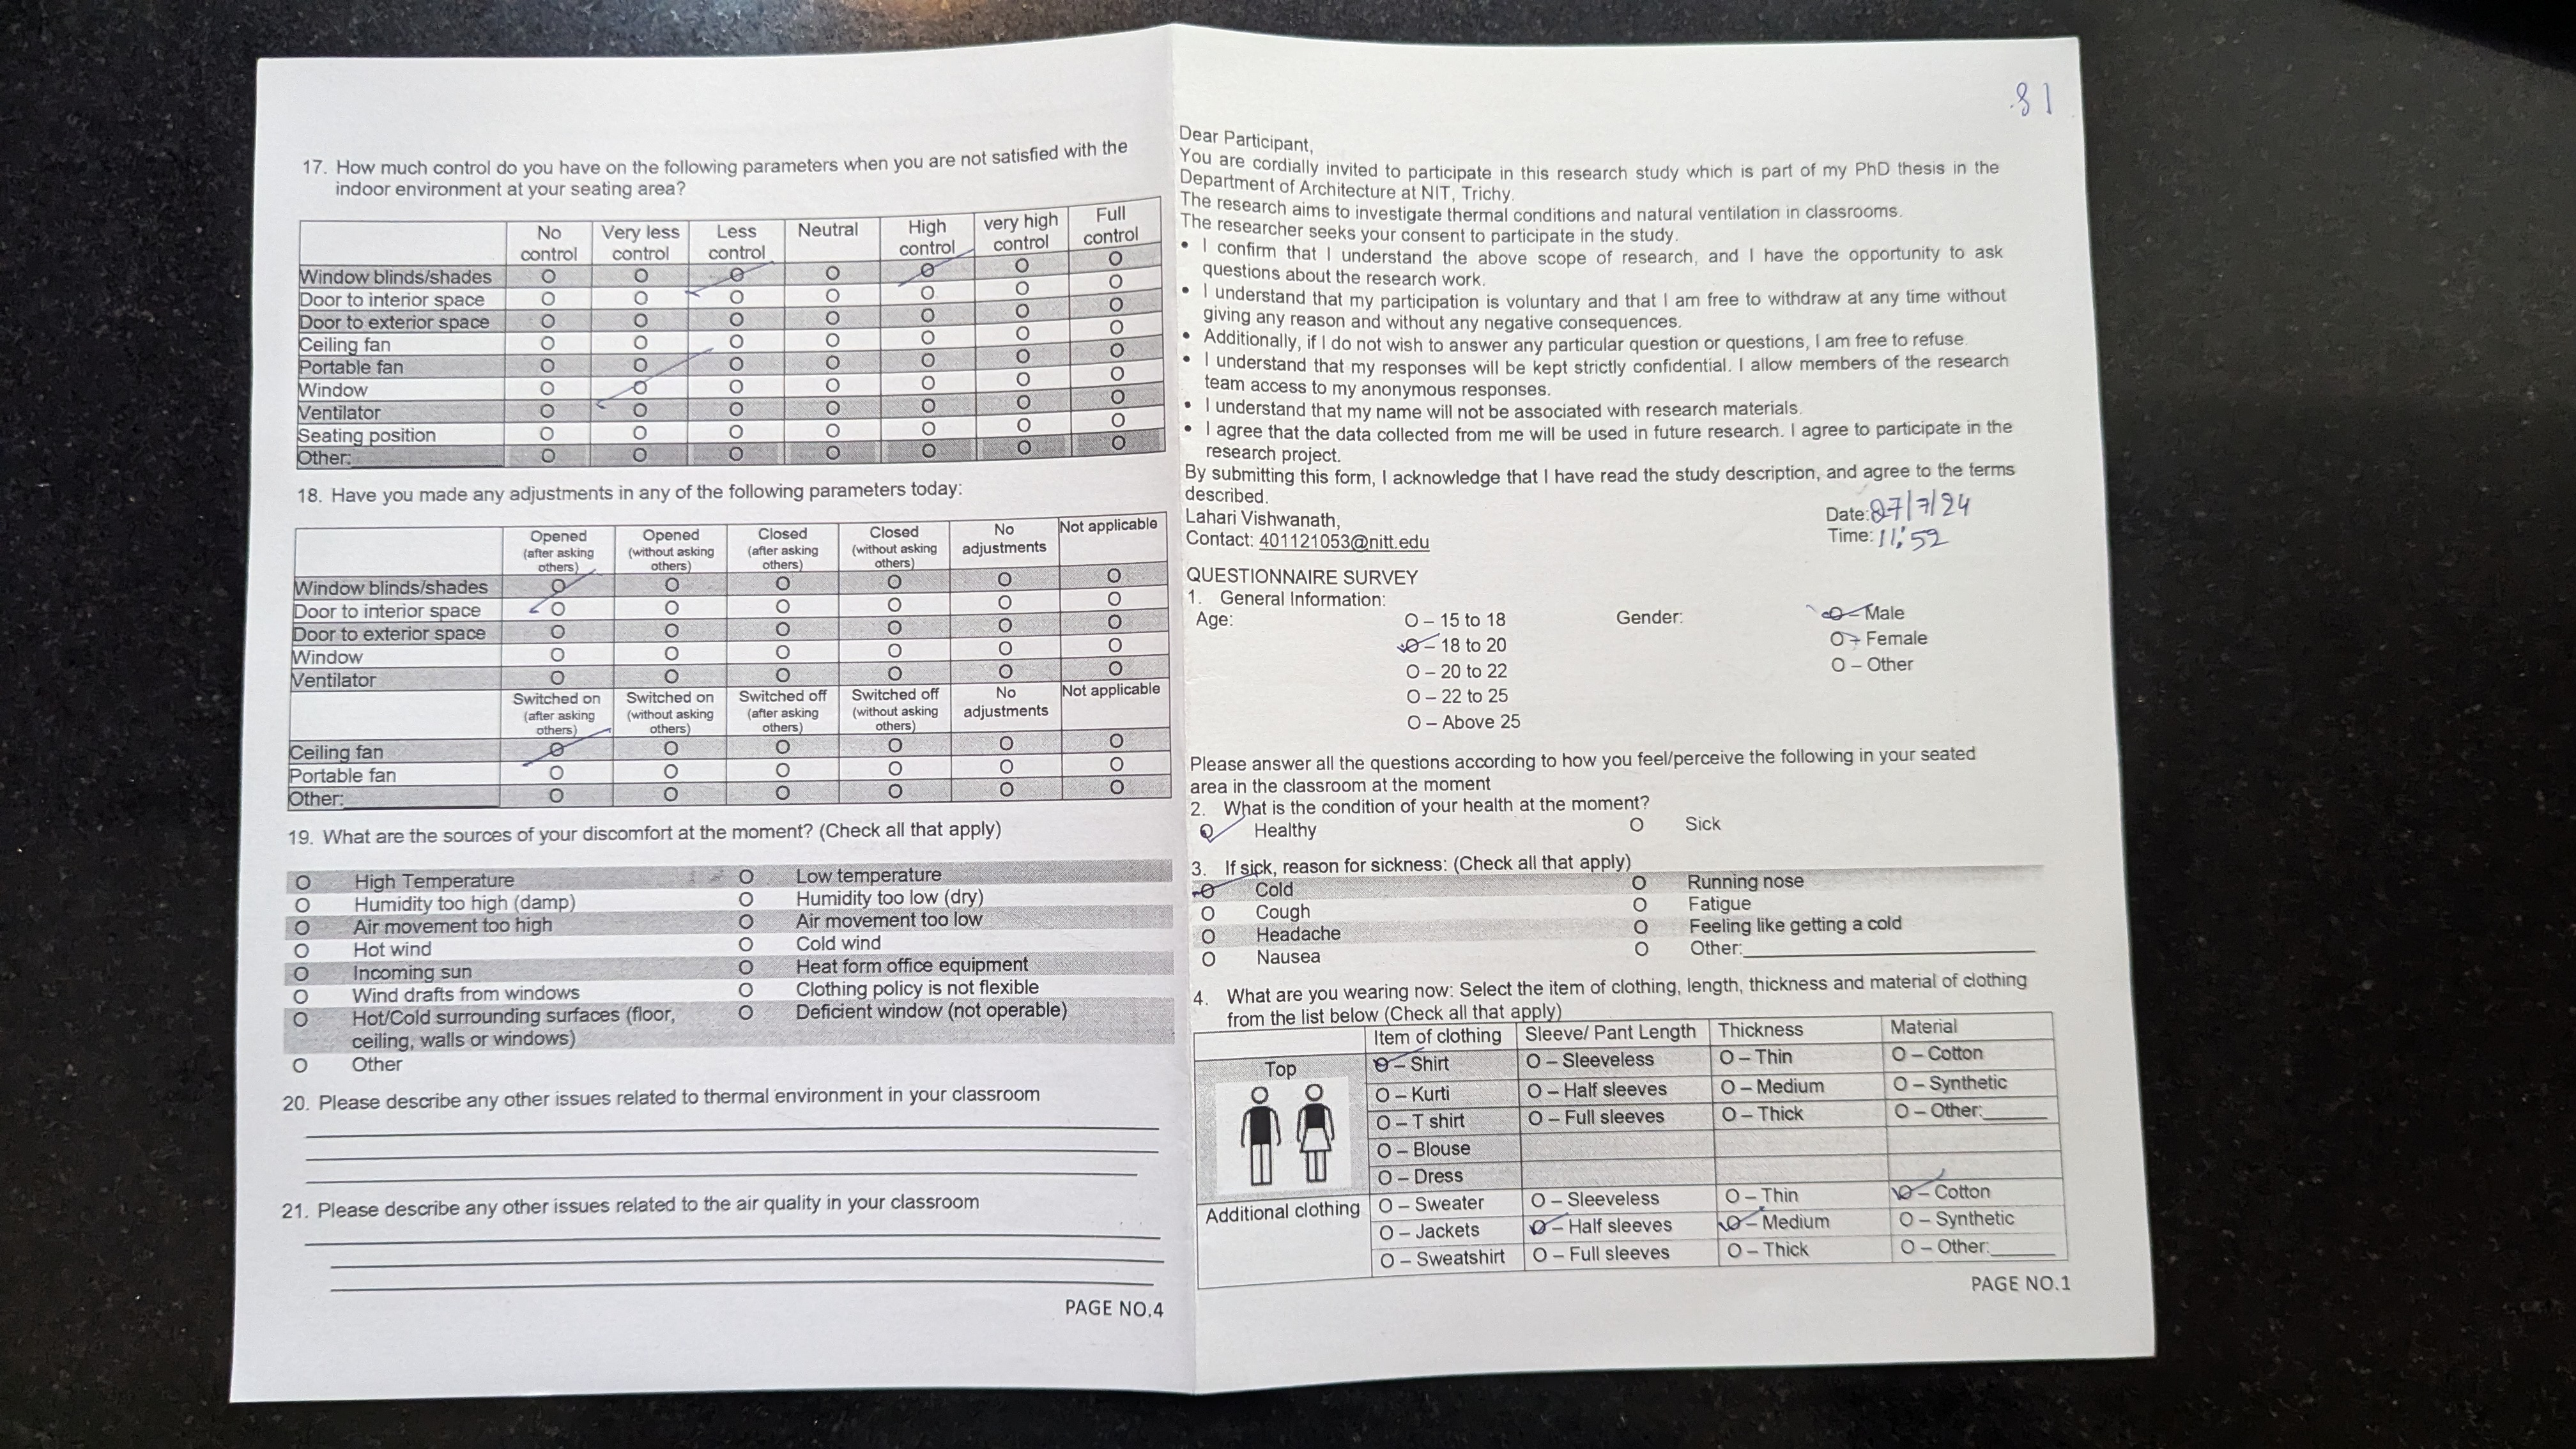 17. How much control do you have on the following parameters when you are not satisfied with the
indoor environment at your seating area?
No control Very less control Less control Neutral High control very high control Full control
Window blinds/shades O O O O O O O
Door to interior space O O O O O O O
Door to exterior space O O O O O O O
Ceiling fan O O O O O O O
Portable fan O O O O O O O
Window O O O O O O O
Ventilator O O O O O O O
Seating position O O O O O O O
Other: O O O O O O O
18. Have you made any adjustments in any of the following parameters today:
Opened (after asking others) Opened (without asking others) Closed (after asking others) Closed (without asking others) No adjustments Not applicable
Window blinds/shades O O O O O O
Door to interior space O O O O O O
Door to exterior space O O O O O O
Window O O O O O O
Ventilator O O O O O O
Switched on (after asking others) Switched on (without asking others) Switched off (after asking others) Switched off (without asking others) No adjustments Not applicable
Ceiling fan O O O O O O
Portable fan O O O O O O
Other:__________ O O O O O O
19. What are the sources of your discomfort at the moment? (Check all that apply)
O High Temperature O Low temperature
O Humidity too high (damp) O Humidity too low (dry)
O Air movement too high O Air movement too low
O Hot wind O Cold wind
O Incoming sun O Heat form office equipment
O Wind drafts from windows O Clothing policy is not flexible
O Hot/Cold surrounding surfaces (floor, O Deficient window (not operable)
ceiling, walls or windows)
O Other
20. Please describe any other issues related to thermal environment in your classroom
21. Please describe any other issues related to the air quality in your classroom
PAGE NO.4
81
Dear Participant,
You are cordially invited to participate in this research study which is part of my PhD thesis in the
Department of Architecture at NIT, Trichy.
The research aims to investigate thermal conditions and natural ventilation in classrooms.
The researcher seeks your consent to participate in the study.
• I confirm that I understand the above scope of research, and I have the opportunity to ask
questions about the research work.
• I understand that my participation is voluntary and that I am free to withdraw at any time without
giving any reason and without any negative consequences.
• Additionally, if I do not wish to answer any particular question or questions, I am free to refuse.
• I understand that my responses will be kept strictly confidential. I allow members of the research
team access to my anonymous responses.
• I understand that my name will not be associated with research materials.
• I agree that the data collected from me will be used in future research. I agree to participate in the
research project.
By submitting this form, I acknowledge that I have read the study description, and agree to the terms
described.
Lahari Vishwanath, Date: 27/7/24
Contact: 401121053@nitt.edu Time: 11:52
QUESTIONNAIRE SURVEY
1. General Information:
Age: O – 15 to 18 Gender: O – Male
O – 18 to 20 O – Female
O – 20 to 22 O – Other
O – 22 to 25
O – Above 25
Please answer all the questions according to how you feel/perceive the following in your seated
area in the classroom at the moment
2. What is the condition of your health at the moment?
O Healthy O Sick
3. If sick, reason for sickness: (Check all that apply)
O Cold O Running nose
O Cough O Fatigue
O Headache O Feeling like getting a cold
O Nausea O Other:__________
4. What are you wearing now: Select the item of clothing, length, thickness and material of clothing
from the list below (Check all that apply)
Item of clothing Sleeve/ Pant Length Thickness Material
Top O – Shirt O – Sleeveless O – Thin O – Cotton
O – Kurti O – Half sleeves O – Medium O – Synthetic
O – T shirt O – Full sleeves O – Thick O – Other:______
O – Blouse
O – Dress
Additional clothing O – Sweater O – Sleeveless O – Thin O – Cotton
O – Jackets O – Half sleeves O – Medium O – Synthetic
O – Sweatshirt O – Full sleeves O – Thick O – Other:______
PAGE NO.1